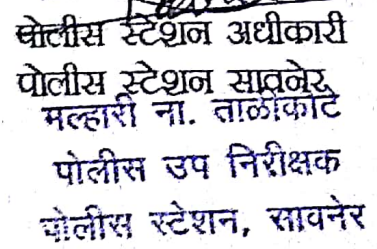 पोलीस स्टेशन अधीकारी
पोलीस स्टेशन सावनेर
मल्हारी ना. ताळीकोटे
पोलीस उप निरीक्षक
पोलीस स्टेशन, सावनेर